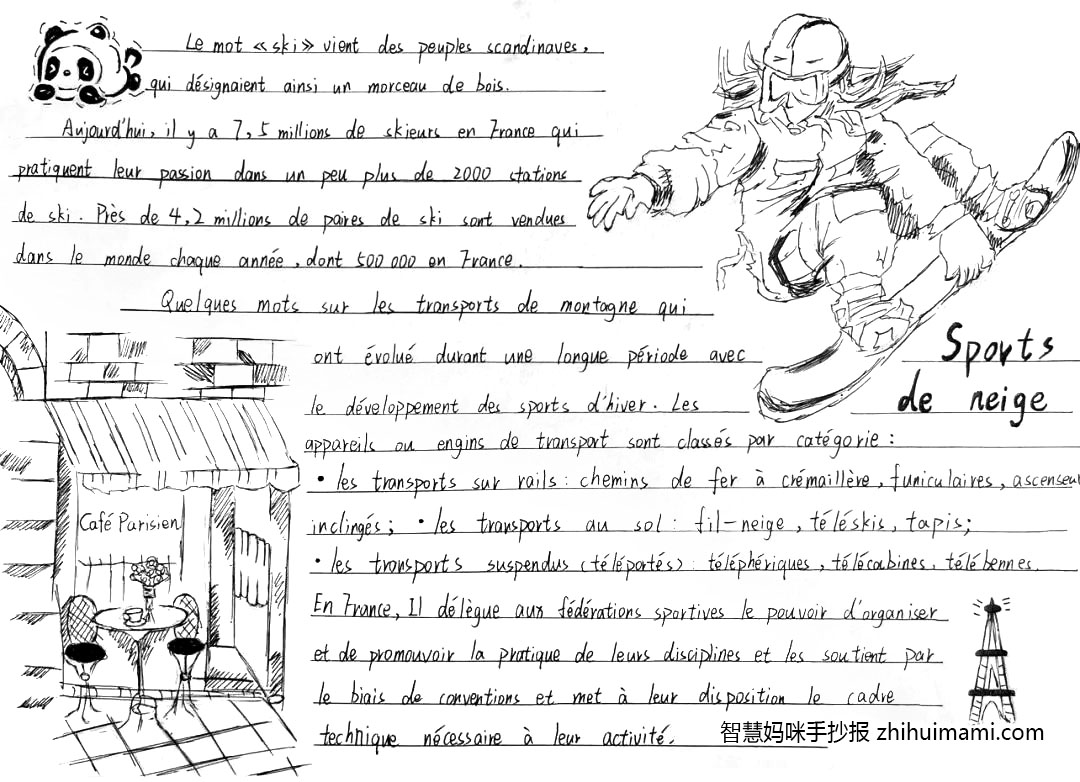 Le mot «ski» vient des peuples scandinaves,
qui désignaient ainsi un morceau de bois.
Aujourd'hui, il y a 7,5 millions de skieurs en France qui
pratiquent leur passion dans un peu plus de 2000 stations
de ski. Près de 4,2 millions de paires de ski sont vendues
dans le monde chaque année, dont 500 000 en France.
Quelques mots sur les transports de montagne qui
ont évolué durant une longue période avec
le développement des sports d'hiver. Les
appareils ou engins de transport sont classés par catégorie :
• les transports sur rails : chemins de fer à crémaillère, funiculaires, ascenseur
inclingés; • les transports au sol : fil-neige, téléskis, tapis;
• les transports suspendus (téléportés) : téléphériques, télécabines, télébennes.
En France, Il délègue aux fédérations sportives le pouvoir d'organiser
et de promouvoir la pratique de leurs disciplines et les soutient par
le biais de conventions et met à leur disposition le cadre
technique nécessaire à leur activité.
Sports
de neige
Café Parisien
智慧妈咪手抄报 zhihuimami.com